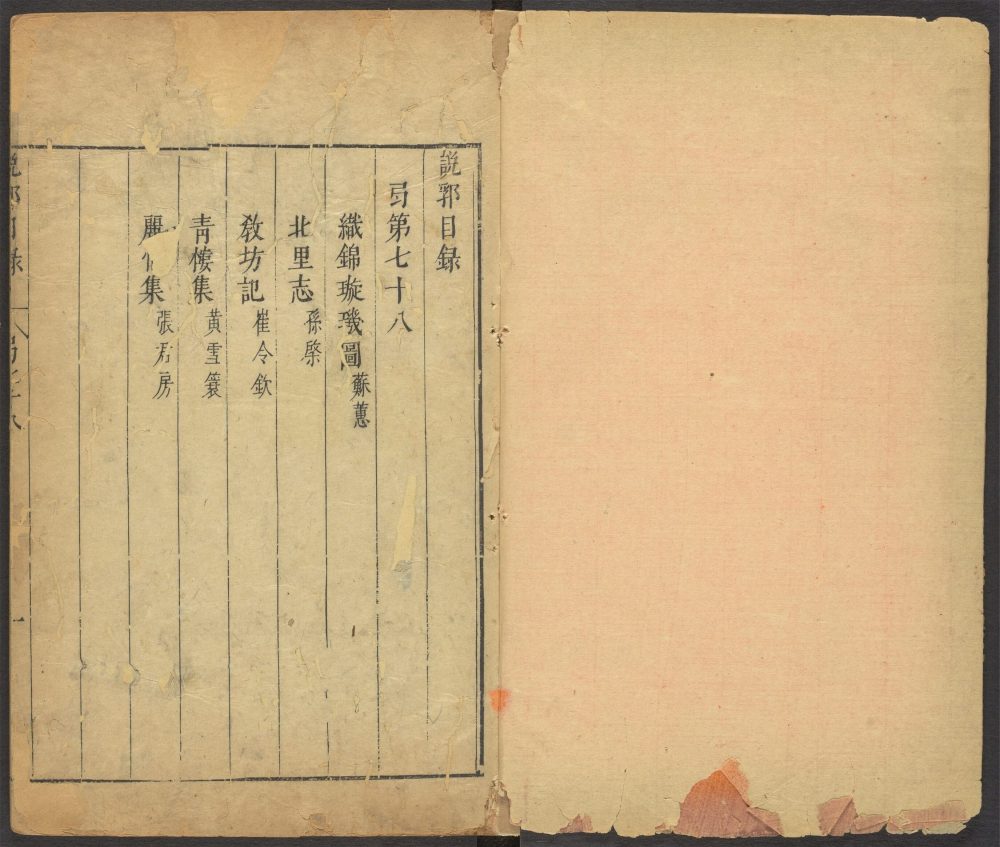 說郛目録
弓第七十八
織錦璇璣圖 蘇蕙
北里志 孫棨
教坊記 崔令欽
青樓集 黃雪簑
麗集 張君房
說郛目録
一